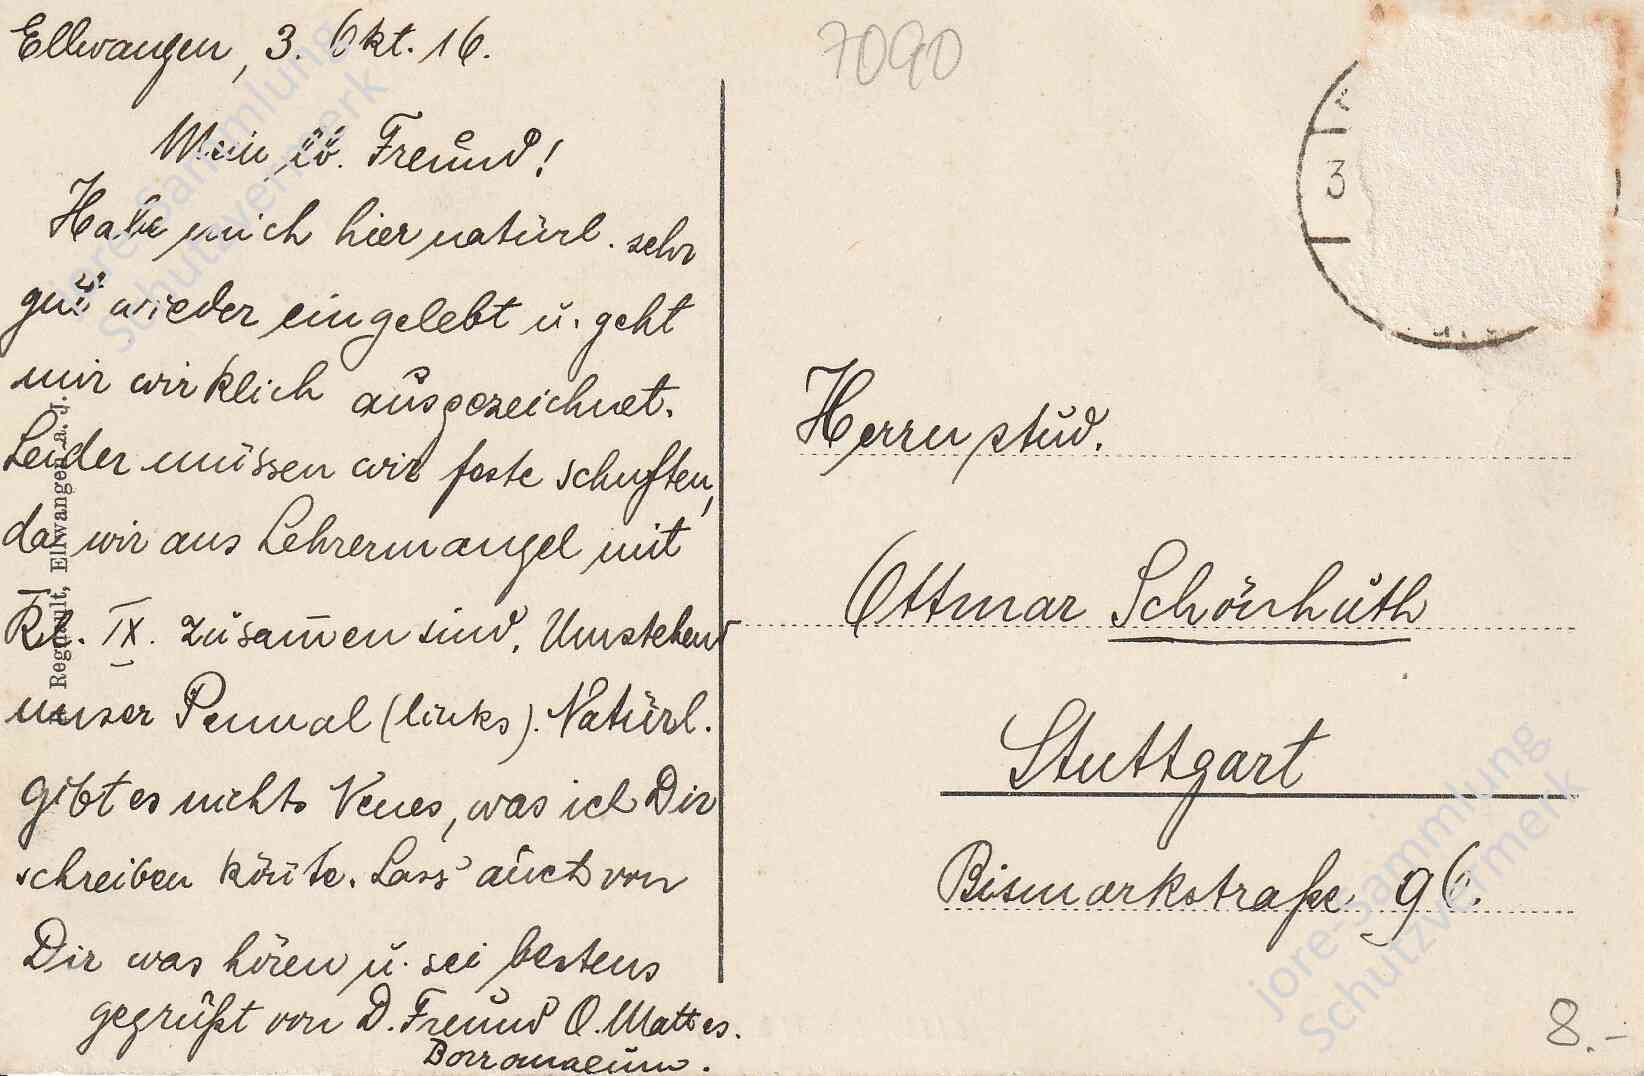 Ellwangen, 3. Okt. 16.
Mein lb. Freund!
Habe mich hier natürl. sehr
gut wieder eingelebt u. geht
mir wirklich ausgezeichnet.
Leider müssen wir feste schuften,
da wir aus Lehrermangel mit
Kl. IX. zusam̅en sind. Umstehend
unser Pennal (links). Natürl.
gibt es nichts Neues, was ich Dir
schreiben kön̅te. Lass' auch von
Dir was hören u. sei bestens
gegrüßt von D. Freund O. Mattes.
Borromaeum.
Regnault, Ellwangen a. J.
7090
3
Herrn stud.
Ottmar Schönhuth
Stuttgart
Bismarkstraße 96.
8.-
jore-Sammlung
Schutzvermerk
jore-Sammlung
Schutzvermerk